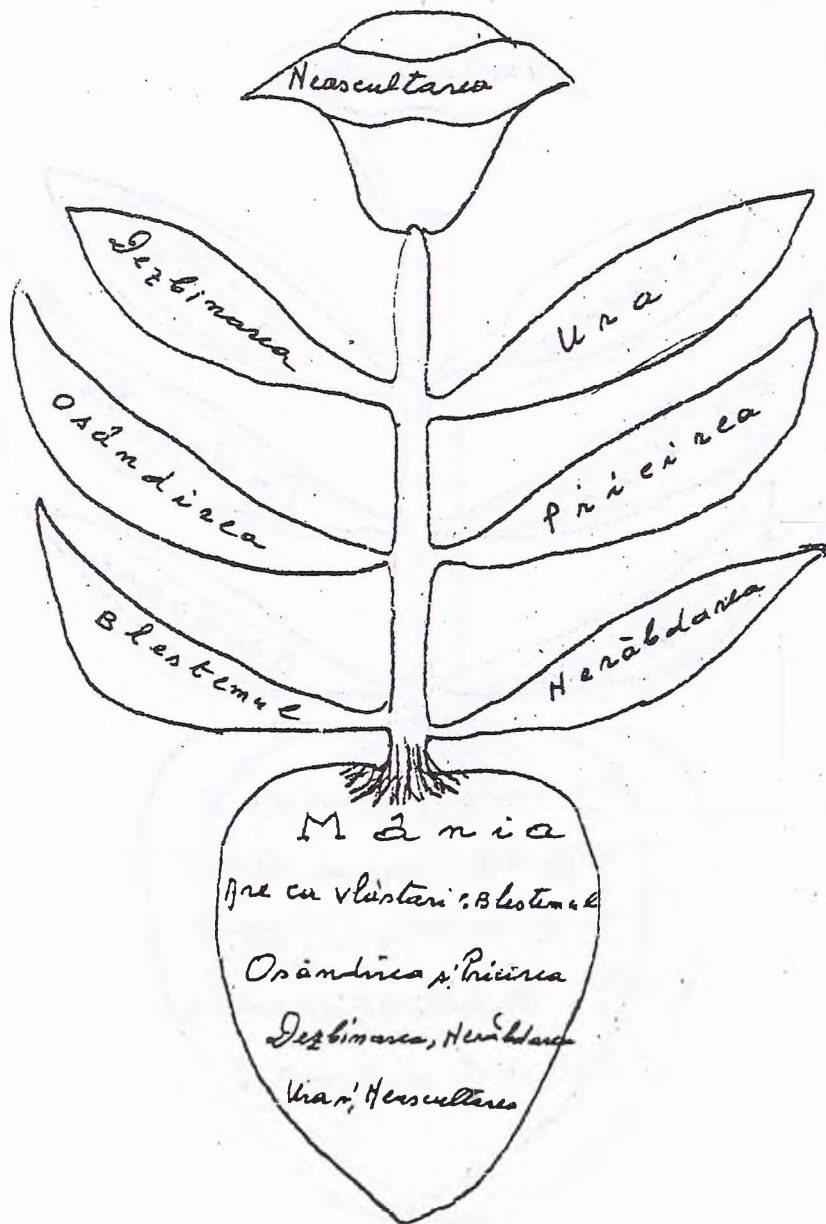 Neascultarea
Dezbinarea
Ura
Osândirea
Pricirea
Blestemul
Nerăbdarea
Mânia
Are ca vlăstari: Blestemul
Osândirea și Pricirea
Dezbinarea, Nerăbdarea
Ura și Neascultarea